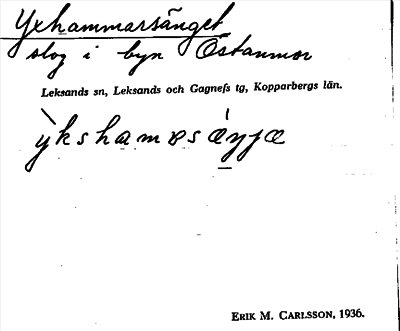 Yxhammarsänget
slog i byn Östanmor
Leksands sn, Leksands och Gagnefs tg, Kopparbergs län.
ỳkshamɐsǽŋjæ
ERIK M. CARLSSON, 1936.